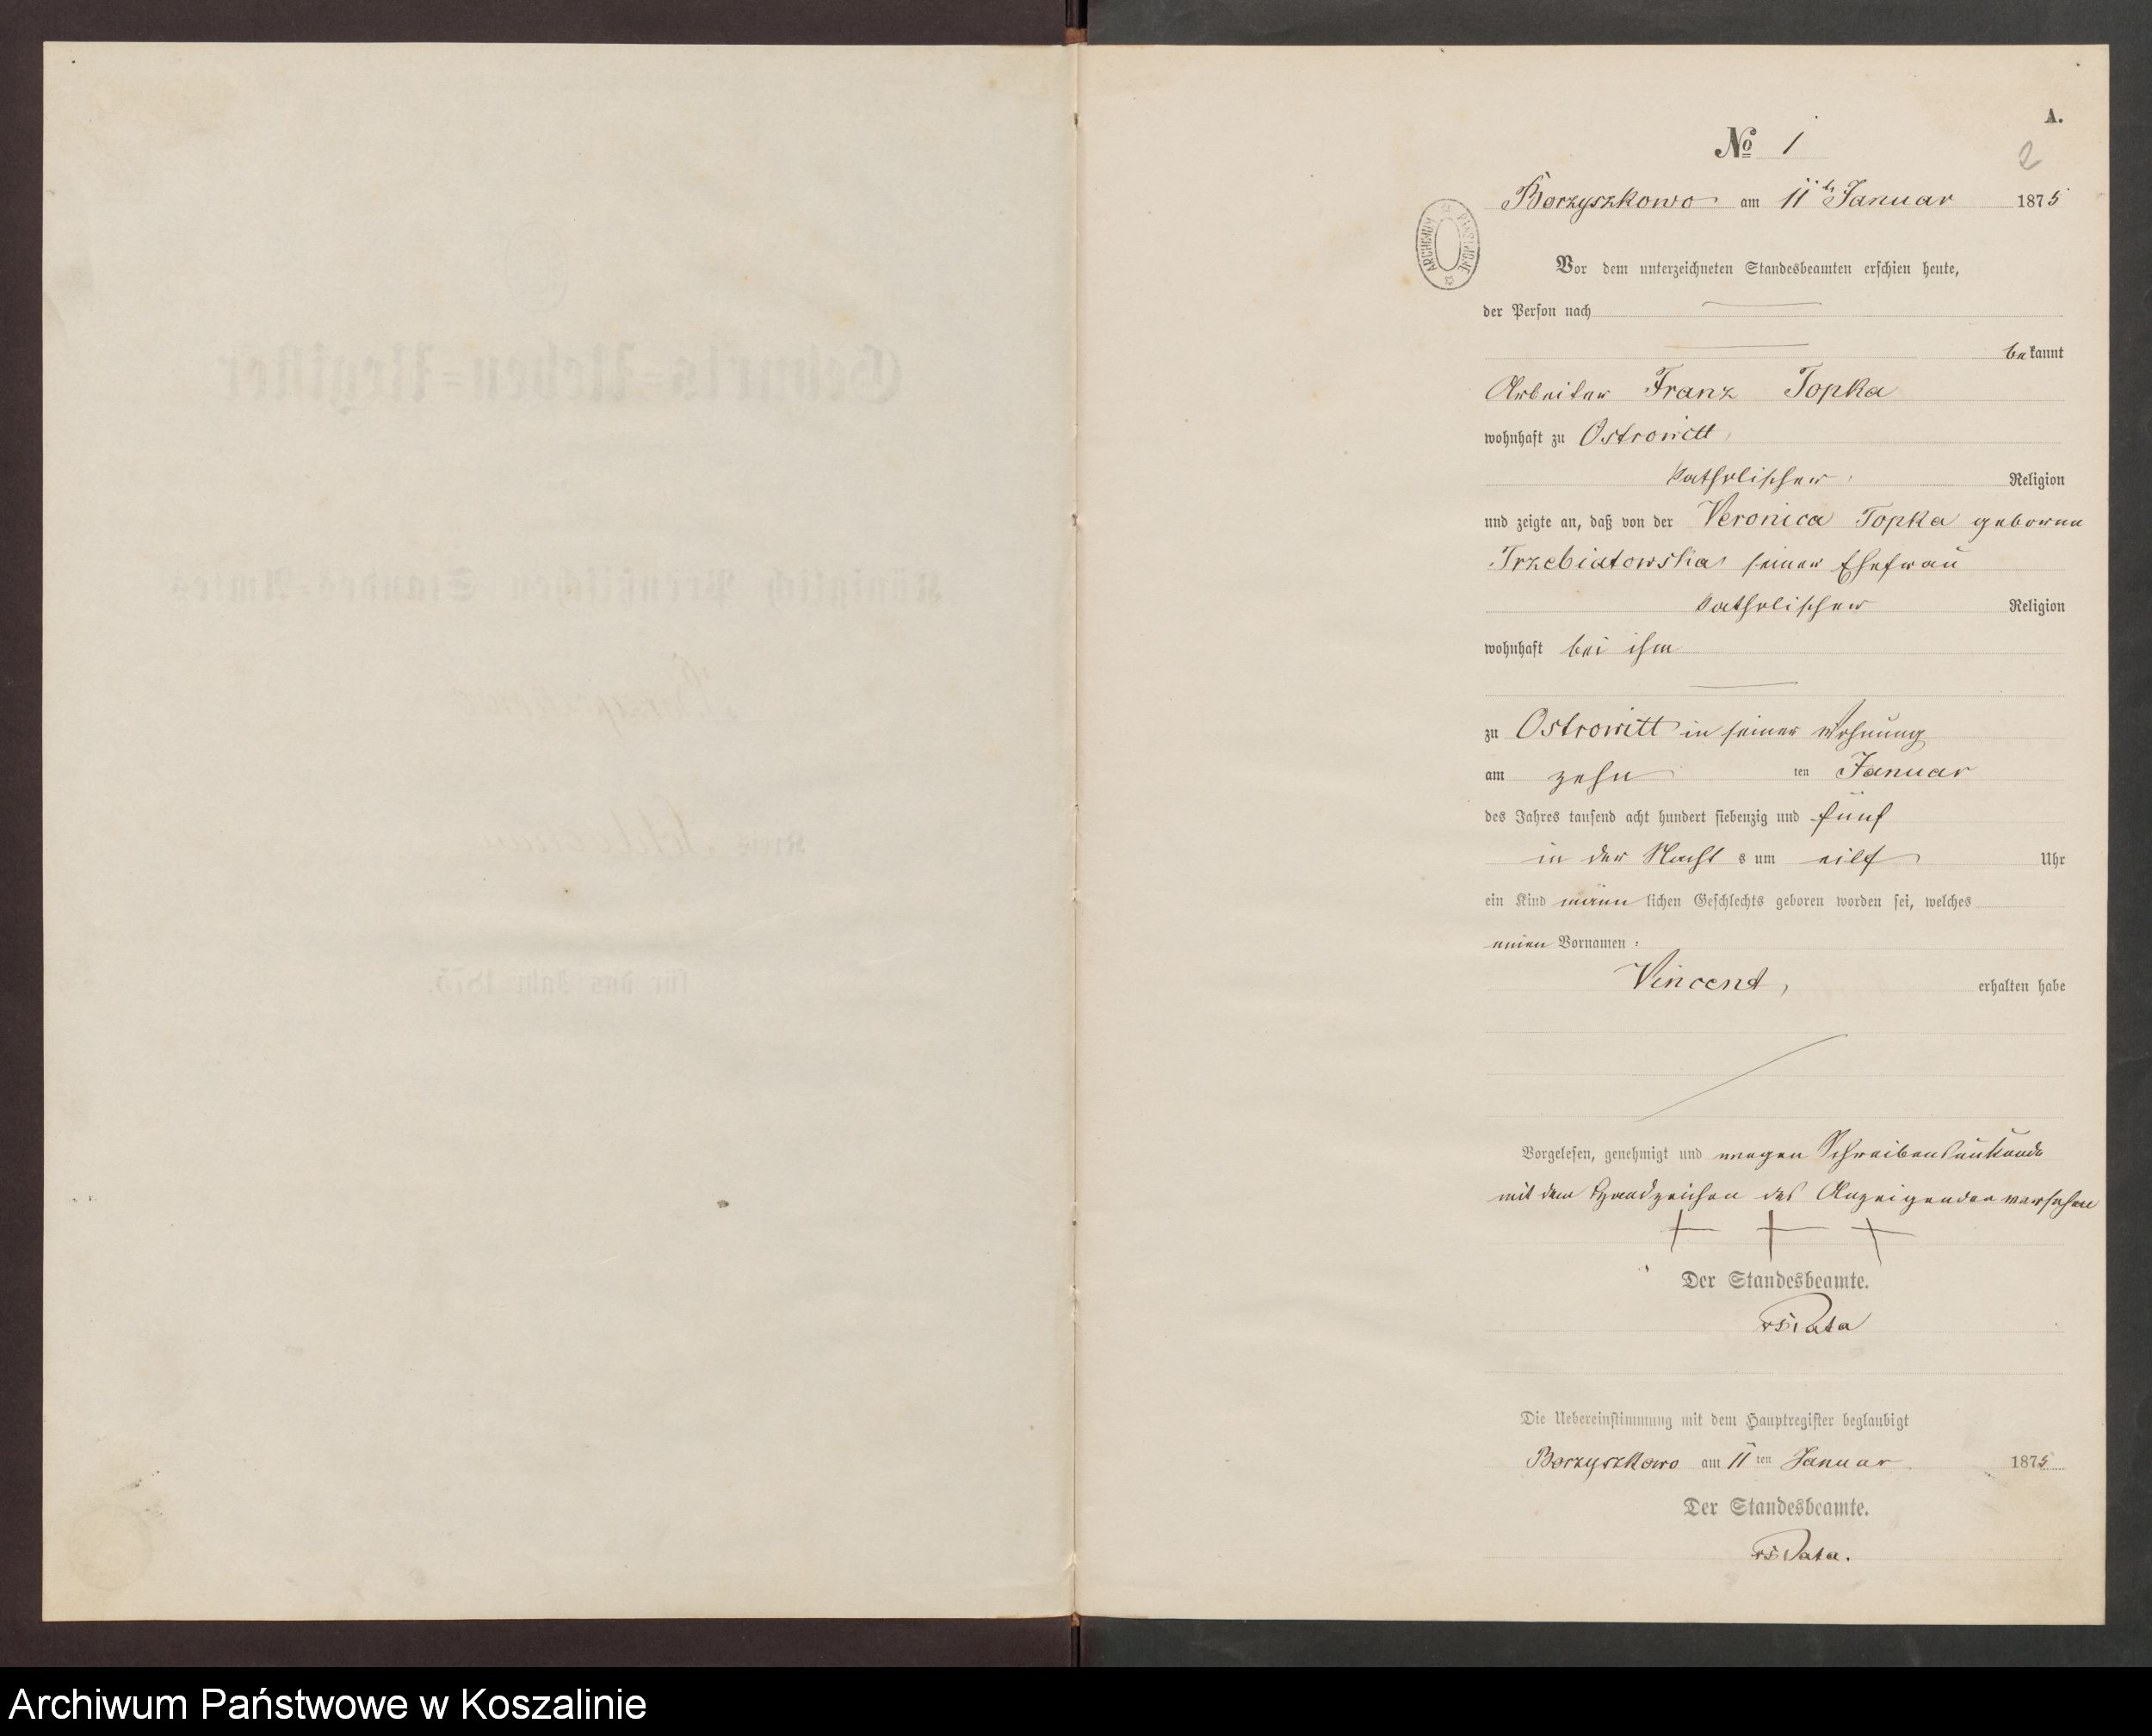 A.
No 1
2
Borzyszkowo am 11ten Januar 1875
ARCHIWUM PAŃSTWOWE
Vor dem unterzeichneten Standesbeamten erschien heute,
der Person nach
bekannt
Arbeiter Franz Topka
wohnhaft zu Ostrowitt,
katholischer Religion
und zeigte an, daß von der Veronica Topka geborene
Trzebiatowska seiner Ehefrau
katholischer Religion
wohnhaft bei ihm
zu Ostrowitt in seiner Wohnung
am zehnten Januar
des Jahres tausend acht hundert siebenzig und fünf
in der Nacht s um eilf Uhr
ein Kind männlichen Geschlechts geboren worden sei, welches
einen Vornamen:
Vincent, erhalten habe
Vorgelesen, genehmigt und wegen Schreibensunkunde
mit dem Handzeichen des Anzeigenden versehen
+ + +
Der Standesbeamte.
Die Uebereinstimmung mit dem Hauptregister beglaubigt
Borzyszkowo am 11ten Januar 1875
Der Standesbeamte.
Archiwum Państwowe w Koszalinie